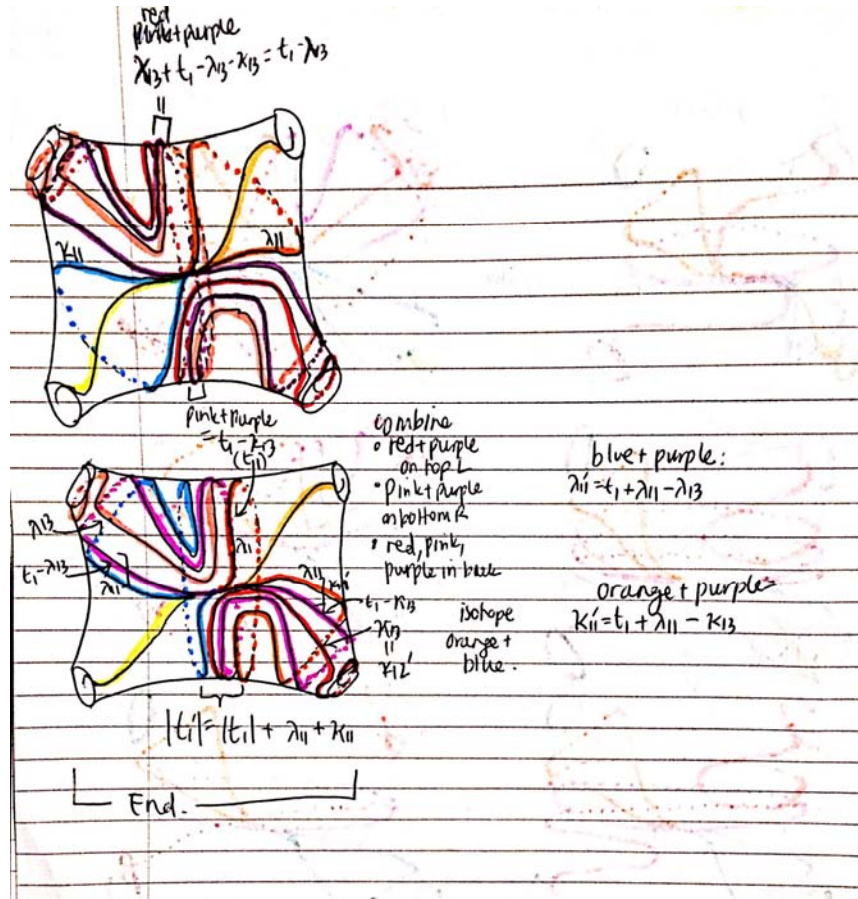 red
pink+purple
κ₁₃+t₁-λ₁₃-κ₁₃=t₁-λ₁₃
=
κ₁₁
λ₁₁
pink+purple
=t₁-κ₁₃
(t₁)
combine
• red+purple
on top L
• pink+purple
on bottom R
• red, pink,
purple in back
blue+purple:
λ₁₁'=t₁+λ₁₁-λ₁₃
λ₁₃
t₁-λ₁₃
λ₁₁
λ₁₁
t₁-κ₁₃
κ₁₃
=
κ₁₂'
isotope
orange+
blue.
orange+purple
κ₁₁'=t₁+λ₁₁-κ₁₃
|t₁'|=|t₁|+λ₁₁+κ₁₁
End.